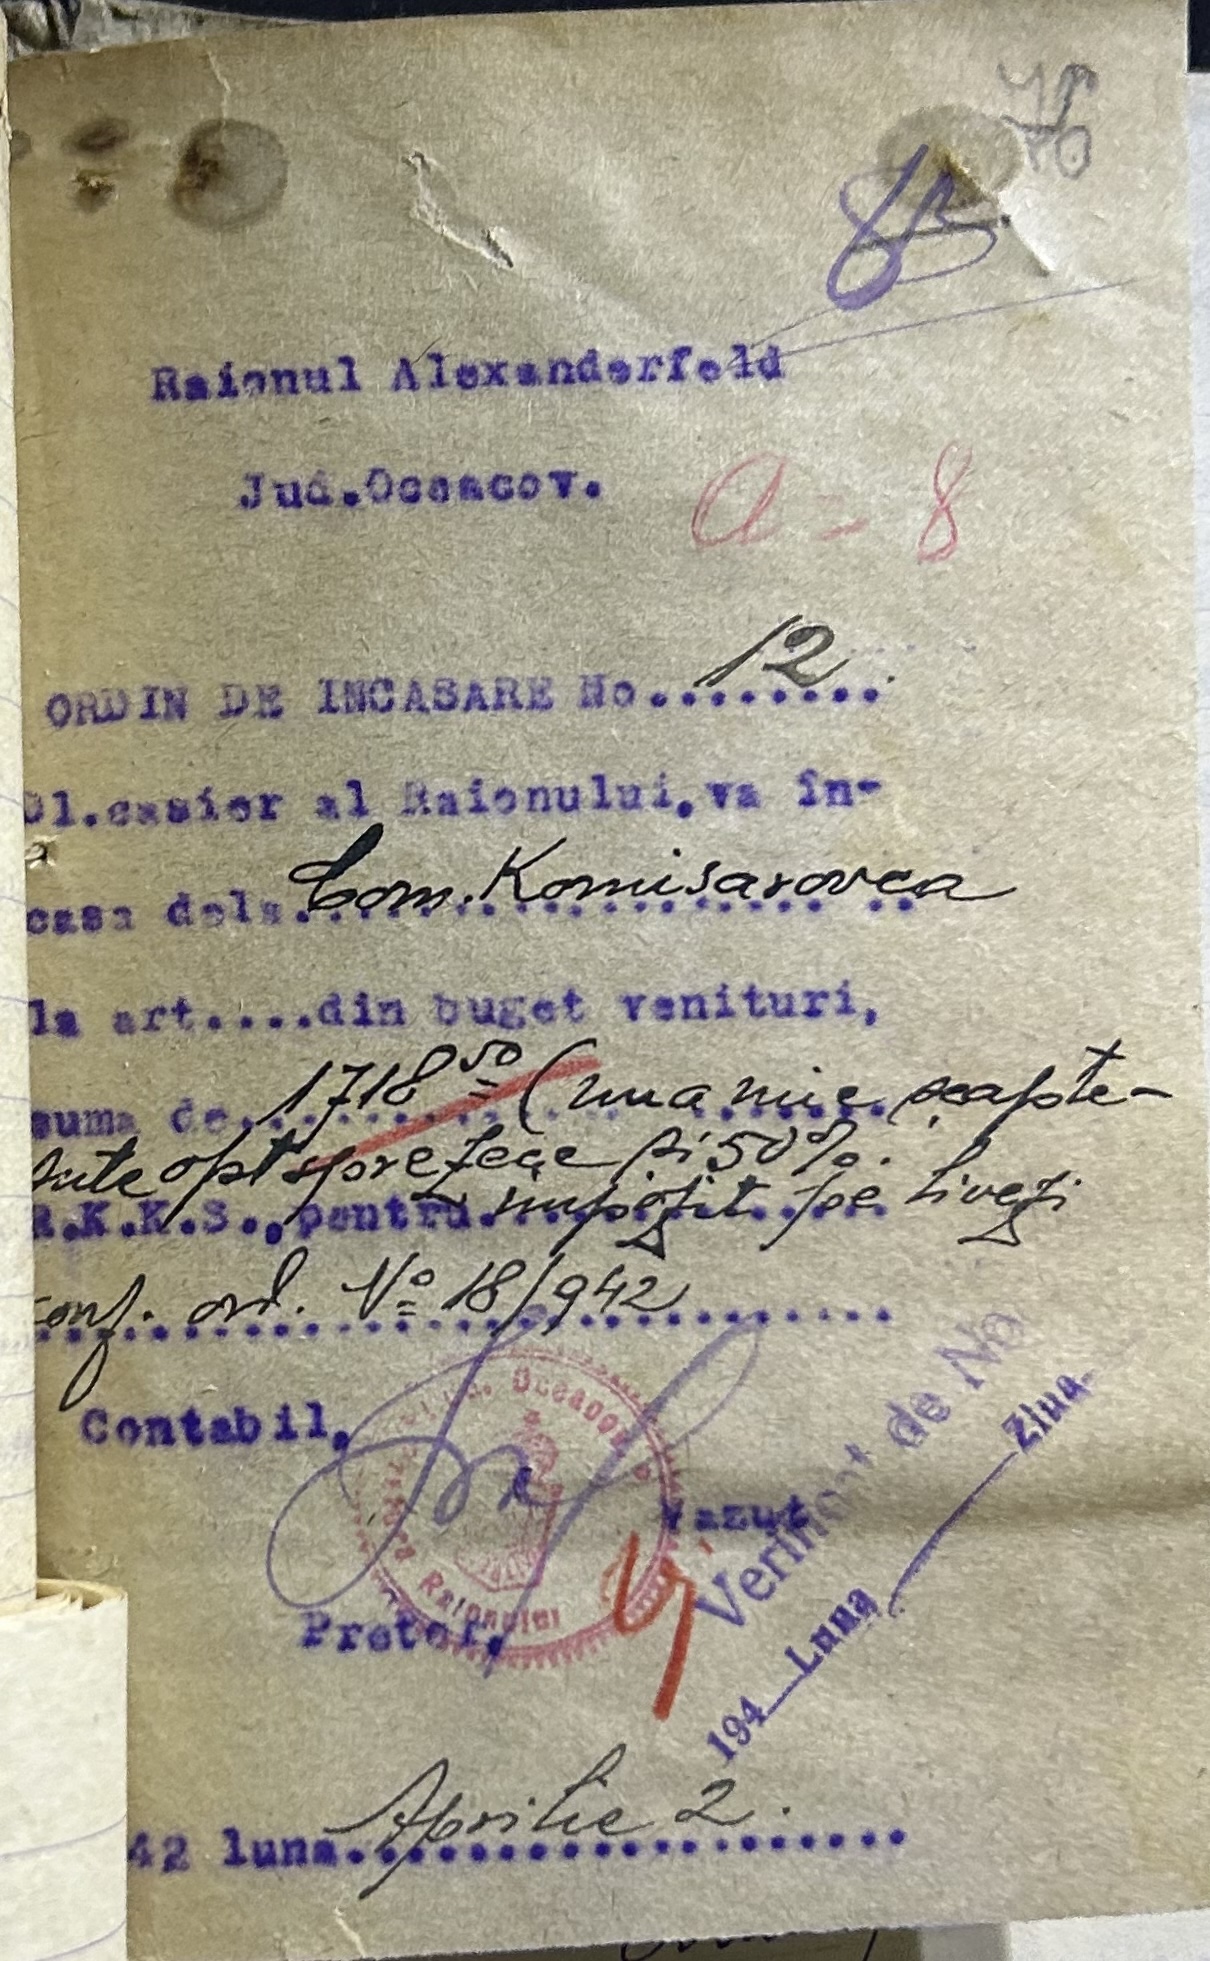 76
Raionul Alexanderfeld
Jud.Oceacov.
a - 8
ORDIN DE INCASARE No. 12
Dl.casier al Raionului,va în-
casa dela Com. Komisarovca
la art....din buget venituri,
suma de 1718 50 (una mie șapte-
sute optsprezece și 50%.
R.K.K.S.,pentru impozit pe livezi
conf. ord. No 18/942
Contabil,
Jud. Oceacov
Raionului
Vazut
Pretor,
Verificat de No
194 Luna Ziua
42 luna Aprilie 2.